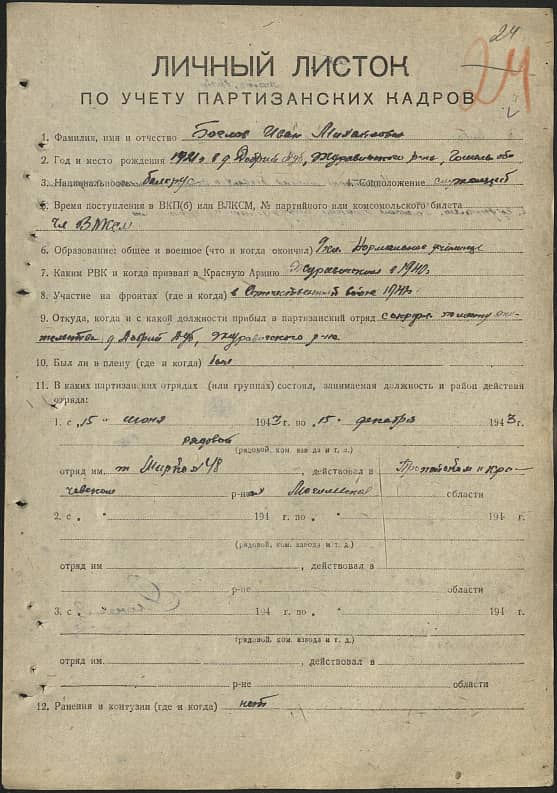 24
24
ЛИЧНЫЙ ЛИСТОК
ПО УЧЕТУ ПАРТИЗАНСКИХ КАДРОВ
1. Фамилия, имя и отчество Иван Михайлович
2. Год и место рождения 1921 г. в д. Добрый Дуб, Журавичского р-на, Гомель обл
3. Национальность белорус 4. Соцположение служащий
5. Время поступления в ВКП(б) или ВЛКСМ, № партийного или комсомольского билета
чл ВЛКСМ
6. Образование: общее и военное (что и когда окончил) училище
7. Каким РВК и когда призван в Красную Армию Журавичским в 1940г
8. Участие на фронтах (где и когда) в Отечественной войне 1941г
9. Откуда, когда и с какой должности прибыл в партизанский отряд с места
жительства д. Добрый Дуб, Журавичского р-на
10. Был ли в плену (где и когда) был
11. В каких партизанских отрядах (или группах) состоял, занимаемая должность и район действия
отряда:
1. с „15 " июня 1943 г. по „15 " декабря 1943 г.
рядовой
(рядовой, ком. взвода и т. д.)
отряд им. 48, действовал в Пропойском и Кри-
чевском р-нах Могилевской области
2. с „ " 194 г. по „ " 194 г.
(рядовой, ком. взвода и т. д.)
отряд им. , действовал в
р-не области
3. с „ " 194 г. по „ " 194 г.
(рядовой, ком. взвода и т. д.)
отряд им. , действовал в
р-не области
12. Ранения и контузии (где и когда) нет